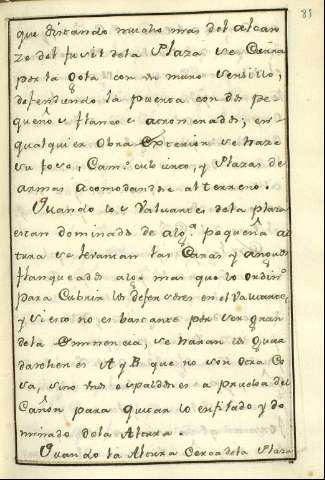 83
que distando mucho mas del alcan
ze del fusil dela Plaza se Cierra
por la Gola con un muro sensillo,
defendiendo la puerta con dos pe
queños flancos acromenados; en
qualquier Obra Exterior se haze
su foso, Cam.º cubierto, y Plazas de
armas acomodandose al terreno.
Quando los Valuartes dela plaza
estan dominados de alg.ª pequeña al
tura se levantan las Caras y angulos
flanqueados algo mas que lo ordin.º
para Cubrir los defensores en el Valuarte,
y si esto no es bastante por ser gran
de la Eminencia, se haran los guar
dasthenes A y B que no son otra Co
sa, sino unos espaldones a prueba del
Cañon para quitar lo enfilado y do
minado dela Altura.
Quando la Altura Cerca dela Plaza